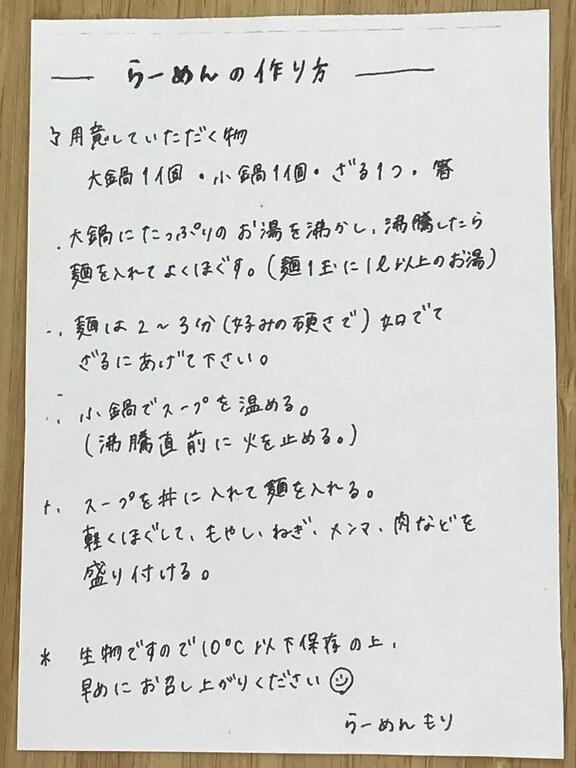 らーめんの作り方
用意していただく物
大鍋1個・小鍋1個・ざる1つ・箸
大鍋にたっぷりのお湯を沸かし、沸騰したら
麺を入れてよくほぐす。(麺1玉に1ℓ以上のお湯)
麺は2〜3分(好みの硬さで)茹でて
ざるにあげて下さい。
小鍋でスープを温める。
(沸騰直前に火を止める。)
スープを丼に入れて麺を入れる。
軽くほぐして、もやし、ねぎ、メンマ、肉などを
盛り付ける。
* 生物ですので10℃以下保存の上、
早めにお召し上がりください☺
らーめんもり